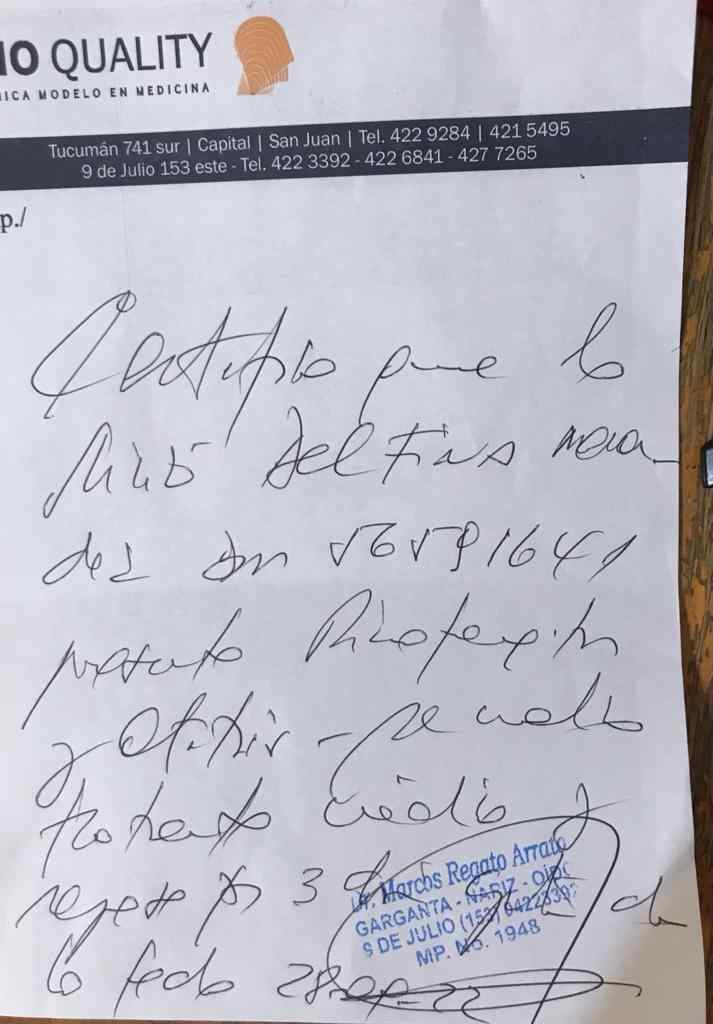 IO QUALITY
ICA MODELO EN MEDICINA
Tucumán 741 sur | Capital | San Juan | Tel. 422 9284 | 421 5495
9 de Julio 153 este - Tel. 422 3392 - 422 6841 - 427 7265
p./
Certifico que la
niña Delfina
dez DNI 56591641
presenta Rinofaringitis
y otitis - se indica
tratamiento médico y
reposo por 3 de
la fecha 28-09-22
Dr. Marcos Regato Arrato
GARGANTA - NARIZ - OIDO
9 DE JULIO (153)
MP. No. 1948